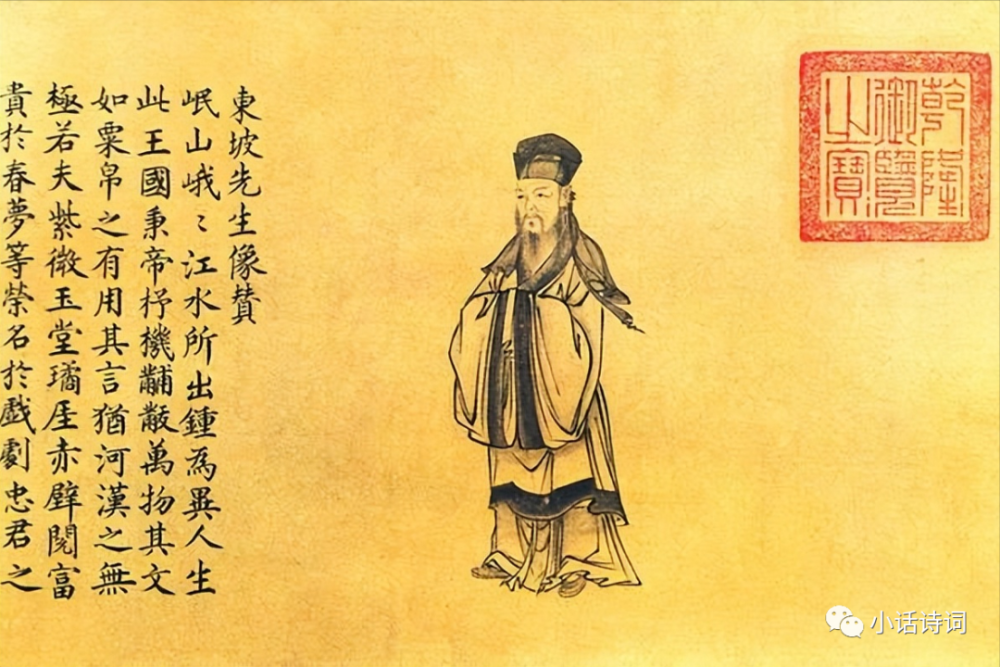 乾隆
御覽
之寶
東坡先生像賛
岷山峨〻江水所出鍾爲異人生
此王國秉帝杼機黼黻萬物其文
如粟帛之有用其言猶河漢之無
極若夫紫微玉堂璚厓赤壁閱富
貴於春夢等榮名於戲劇忠君之
小话诗词